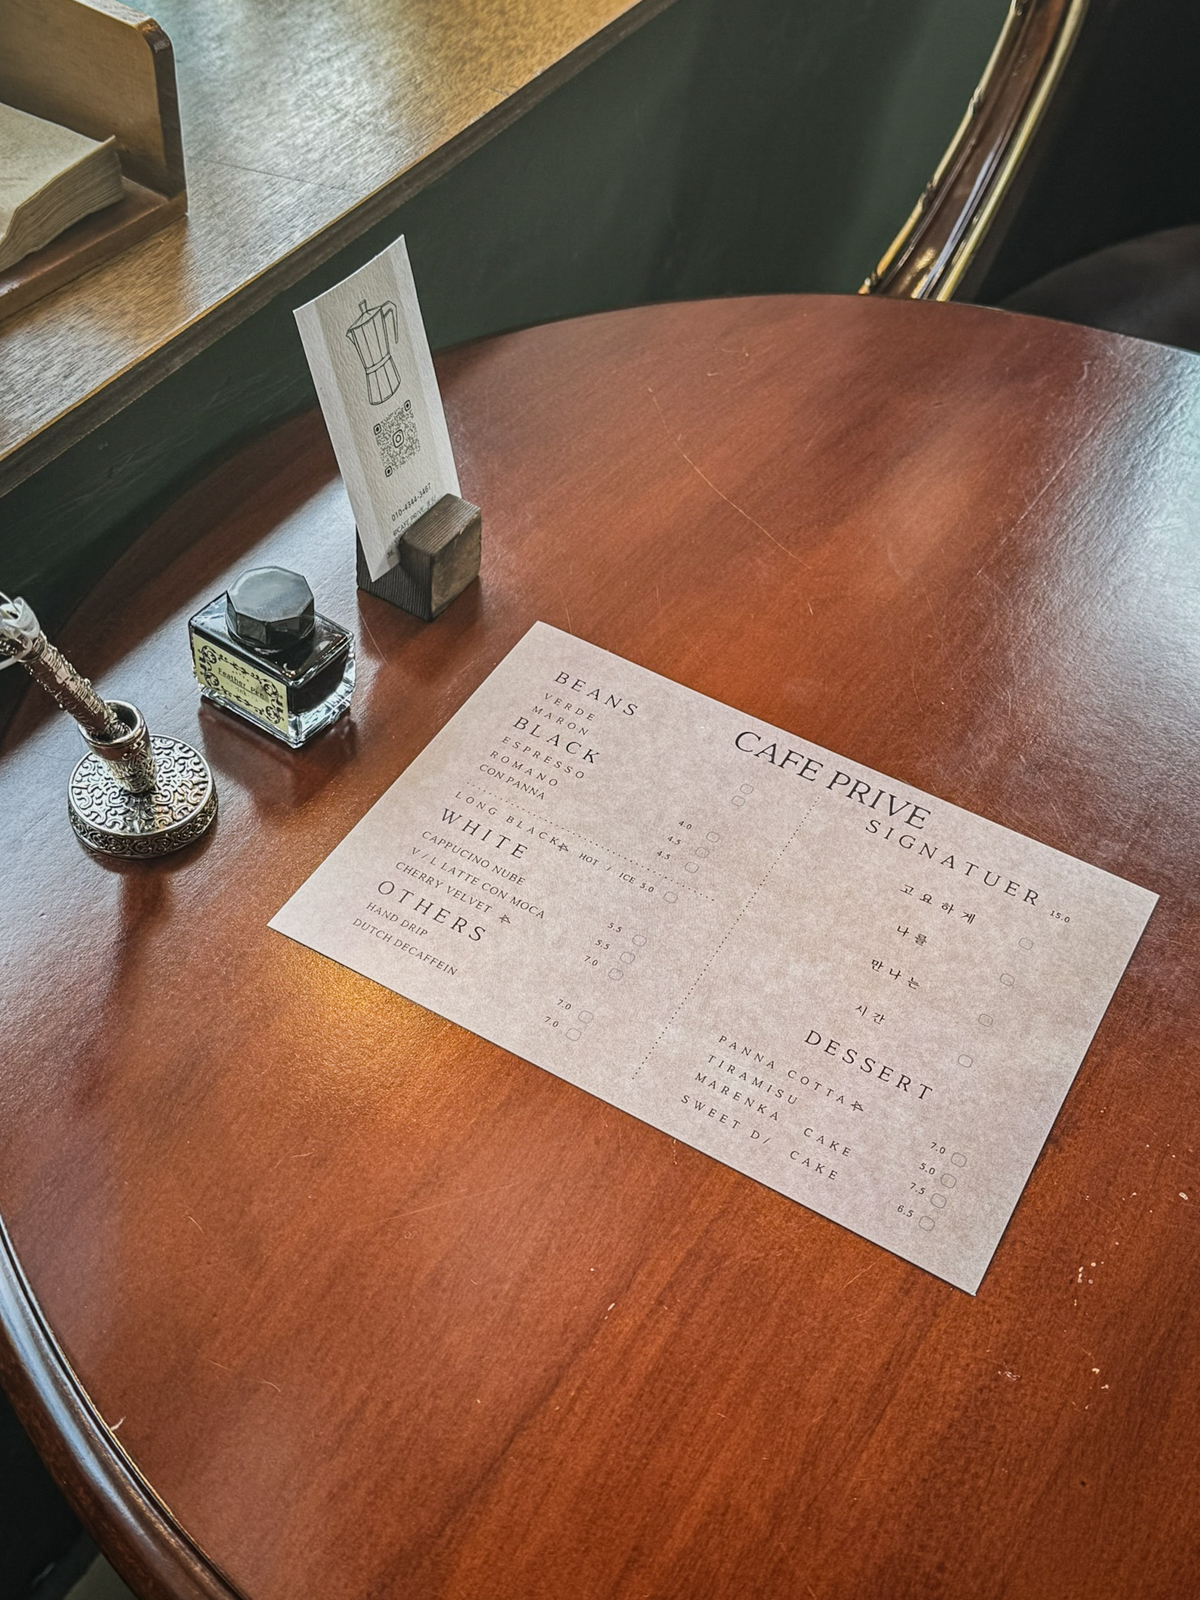 010-4344-3467
Feather Pen
CAFE PRIVE
BEANS
VERDE
MARON
BLACK
ESPRESSO 4.0
ROMANO 4.5
CON PANNA 4.5
LONG BLACK HOT / ICE 5.0
WHITE
CAPPUCINO NUBE 5.5
V / L LATTE CON MOCA 5.5
CHERRY VELVET 7.0
OTHERS
HAND DRIP 7.0
DUTCH DECAFFEIN 7.0
SIGNATUER 15.0
고요하게
나를
만나는
시간
DESSERT
PANNA COTTA 7.0
TIRAMISU 5.0
MARENKA CAKE 7.5
SWEET D/ CAKE 6.5